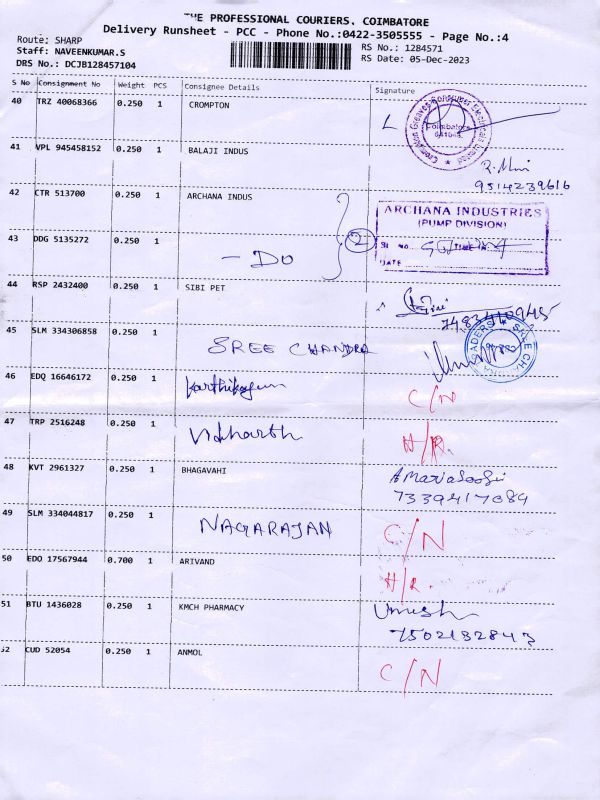 THE PROFESSIONAL COURIERS, COIMBATORE
Delivery Runsheet - PCC - Phone No.:0422-3505555 - Page No.:4
Route: SHARP
Staff: NAVEENKUMAR.S
DRS No.: DCJB128457104
RS No.: 1284571
RS Date: 05-Dec-2023
S No Consignment No Weight PCS Consignee Details Signature
40 TRZ 40068366 0.250 1 CROMPTON
Coimbatore
41 VPL 945458152 0.250 1 BALAJI INDUS
9514239616
42 CTR 513700 0.250 1 ARCHANA INDUS
ARCHANA INDUSTRIES
(PUMP DIVISION)
43 DDG 5135272 0.250 1 - DO 2
SI NO
DATE
44 RSP 2432400 0.250 1 SIBI PET
7483410945
45 SLM 334306858 0.250 1 SREE CHANDRA
46 EDQ 16646172 0.250 1 Karthikeyan C/N
47 TRP 2516248 0.250 1 H/R.
48 KVT 2961327 0.250 1 BHAGAVAHI
7339417084
49 SLM 334044817 0.250 1 NAGARAJAN C/N
50 EDO 17567944 0.700 1 ARIVAND H/R.
51 BTU 1436028 0.250 1 KMCH PHARMACY Umesh
7502132843
52 CUD 52054 0.250 1 ANMOL C/N